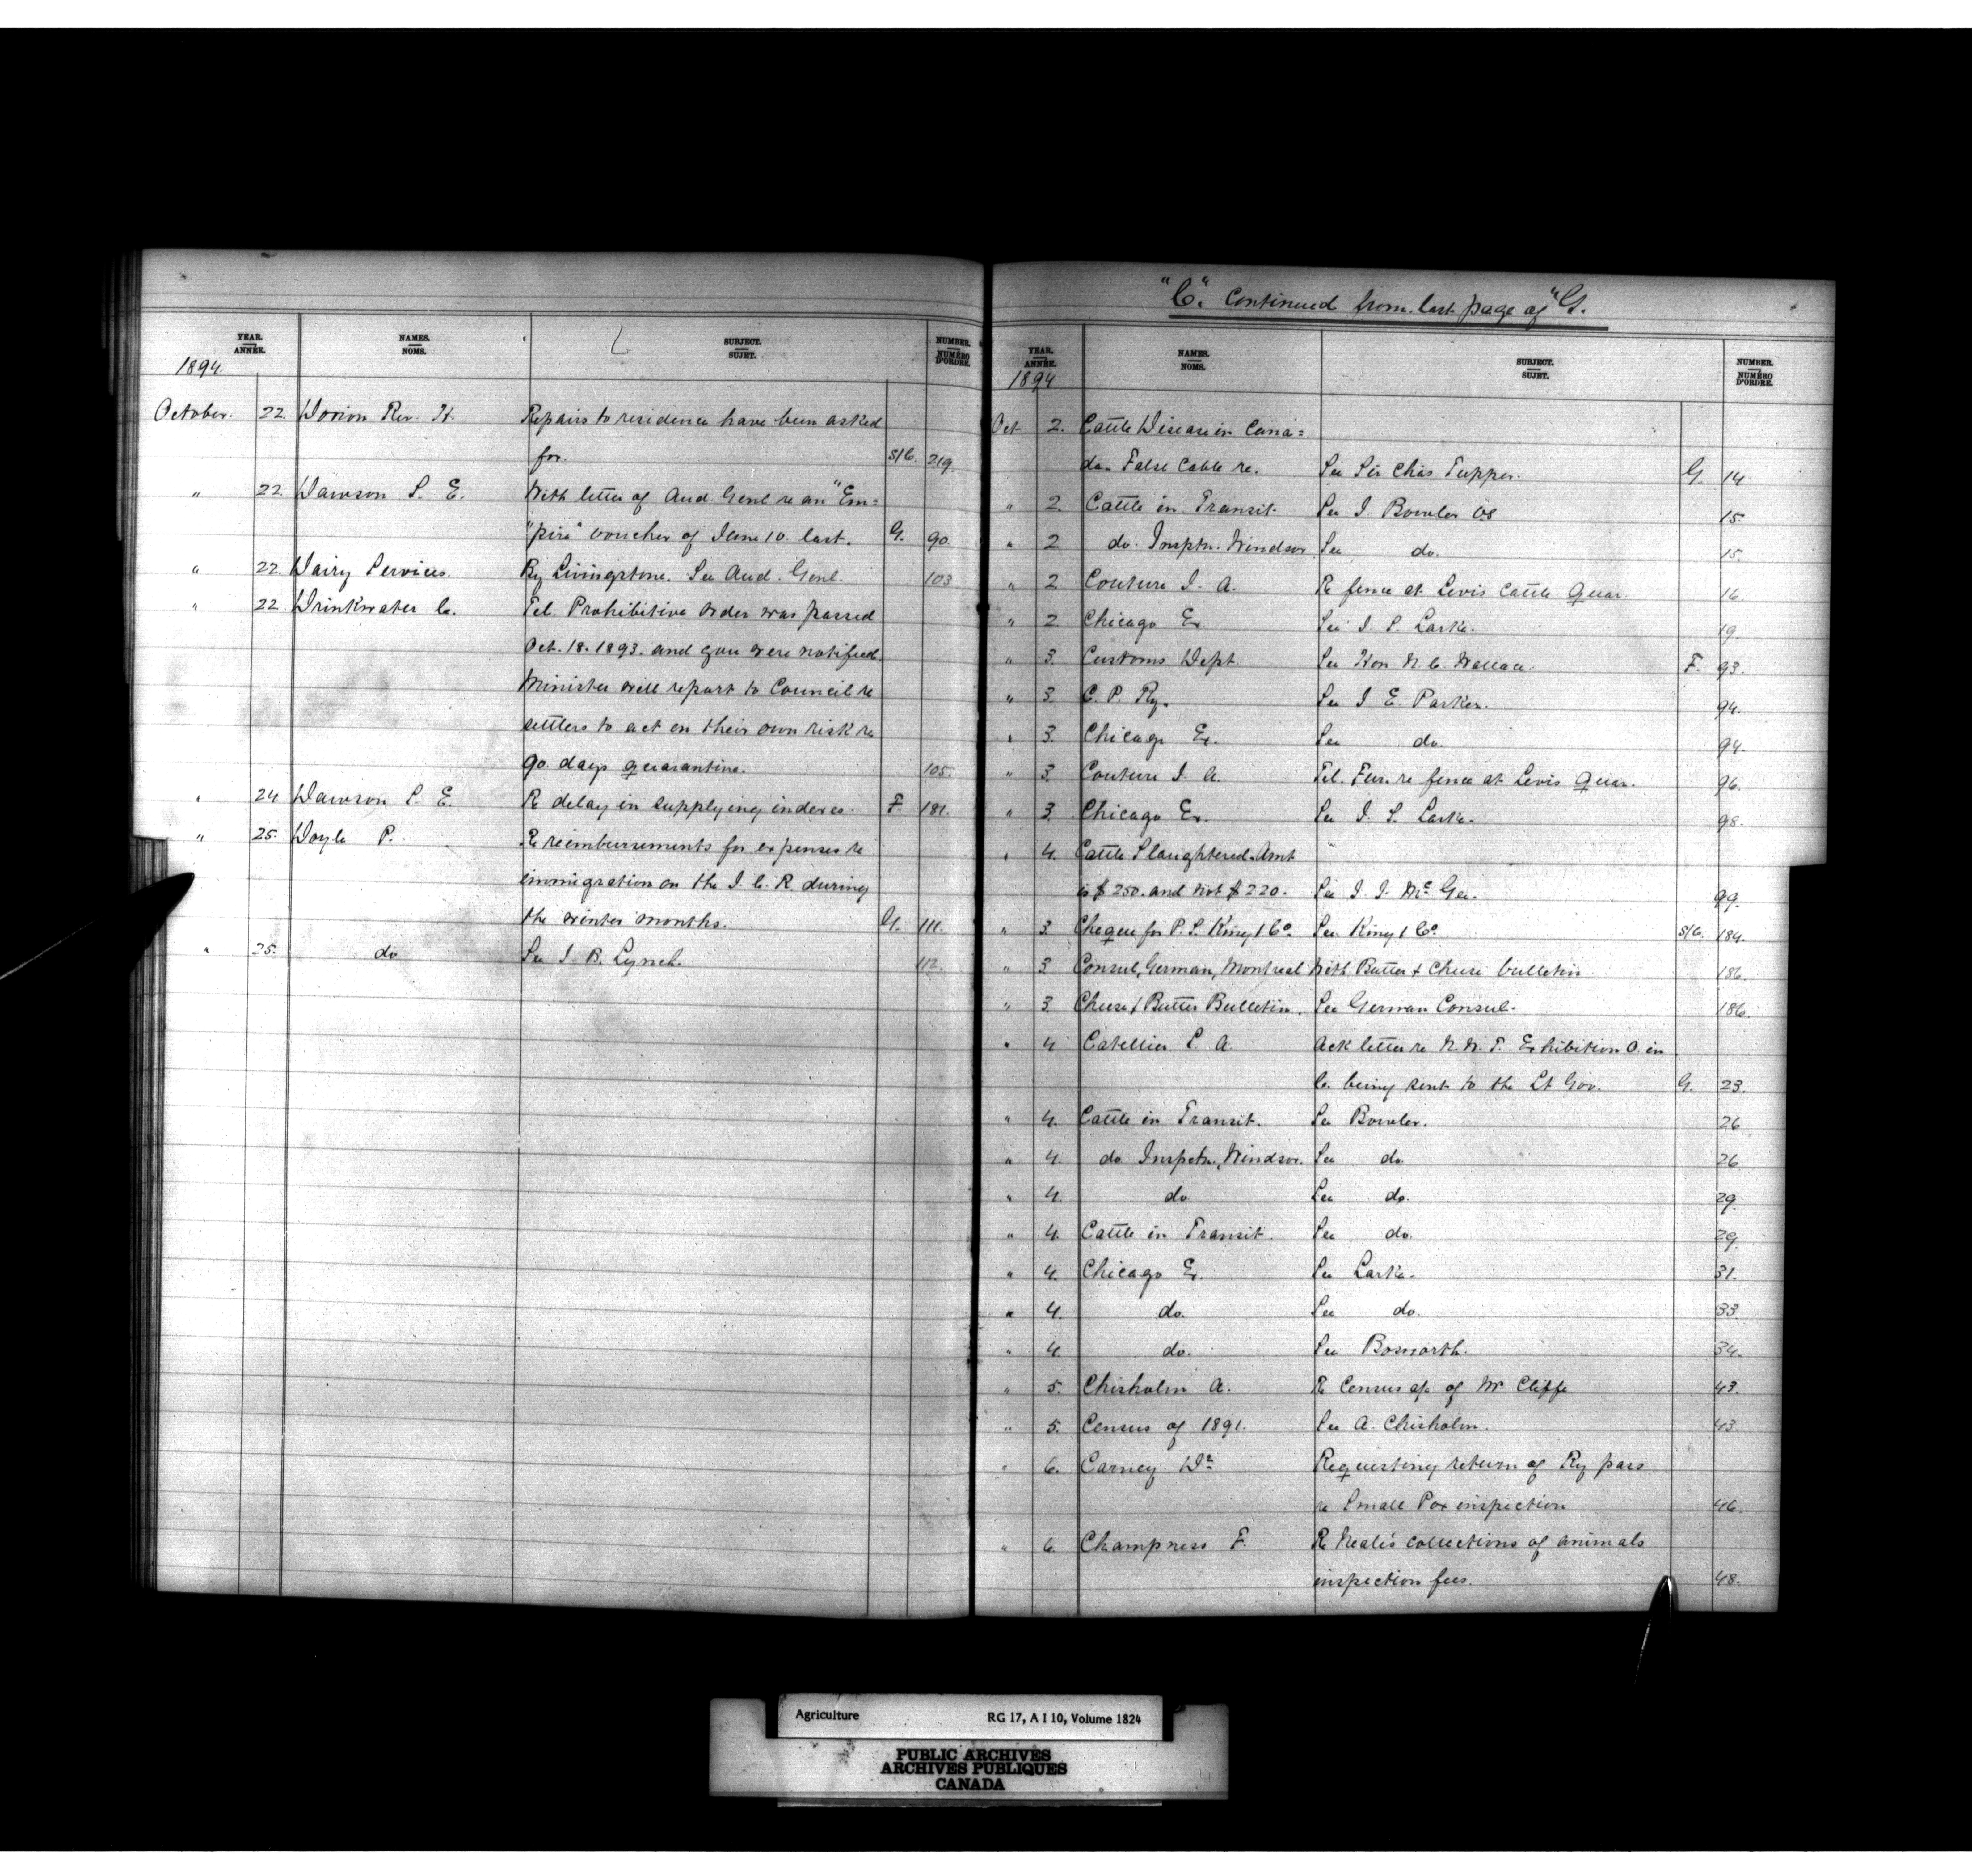 YEAR. ANNÉE. NAMES. NOMS. SUBJECT. SUJET. NUMBER. NUMÉRO D'ORDRE.
1894
October. 22. Dorion Rev. H. Repairs to residence have been asked
for. S/C. 219.
" 22. Dawson S. E. With letter of Aud. Genl re an "Em=
"pire" voucher of June 10. last. G. 90.
" 22. Dairy Services. By Livingstone. See Aud. Genl. 103
" 22. Drinkwater C. Tel. Prohibitive order was passed
Oct. 18. 1893. and you were notified.
Minister will report to Council re
settlers to act on their own risk re
90. days quarantine. 105.
" 24 Dawson S. E. Re delay in supplying indexes. F. 181.
" 25. Doyle P. Re reimbursements for expenses re
immigration on the I. C. R. during
the winter months. G. 111.
" 25. do See J. B. Lynch. 112.
"C". Continued from last page of "G.
YEAR. ANNÉE. NAMES. NOMS. SUBJECT. SUJET. NUMBER. NUMÉRO D'ORDRE.
1894
Oct 2. Cattle Disease in Cana=
da. False Cable re. See Sir Chas Tupper. G. 14
" 2. Cattle in Transit. See J. Bowler VS 15.
" 2. do. Insptn. Windsor. See do. 15.
" 2 Couture J. A. Re fence at Levis Cattle Quar. 16.
" 2 Chicago Ex. See J. S. Larke. 19.
" 3. Customs Dept. See Hon N. C. Wallace. F. 93.
" 3. C. P. Ry. See J. E. Parker. 94.
" 3. Chicago Ex. See do. 94.
" 3. Couture J. A. Tel. Fur. re fence at Levis Quar. 96.
" 3. Chicago Ex. See J. S. Larke. 98.
" 4. Cattle Slaughtered. Amt "
is $250. and not $220. See J. J. McGee. 99.
" 3. Cheque for P. S. King & Co. See King & Co. S/C. 184.
" 3 Consul, German, Montreal With Butter & Cheese bulletin 186.
" 3. Cheese & Butter Bulletin. See German Consul. 186.
" 4 Catellier L. A. Ack letter re N. W. T. Exhibition O. in
C. being sent to the Lt Gov. G. 23.
" 4. Cattle in Transit. See Bowler. 26
" 4. do Inspctn, Windsor. See do. 26
" 4. do See do. 29.
" 4. Cattle in Transit. See do. 29.
" 4. Chicago Ex. See Larke. 31.
" 4. do. See do. 33.
" 4. do. See Bosworth. 34.
" 5. Chisholm A. Re Census a/c of W. Cliffe 43.
" 5. Census of 1891. See A. Chisholm. 43.
" 6. Carney Dr. Requesting return of Ry pass
re Small Pox inspection 46.
" 6. Champness F. Re Neale's collections of animals
inspection fees. 48.
Agriculture RG 17, A I 10, Volume 1824
PUBLIC ARCHIVES
ARCHIVES PUBLIQUES
CANADA